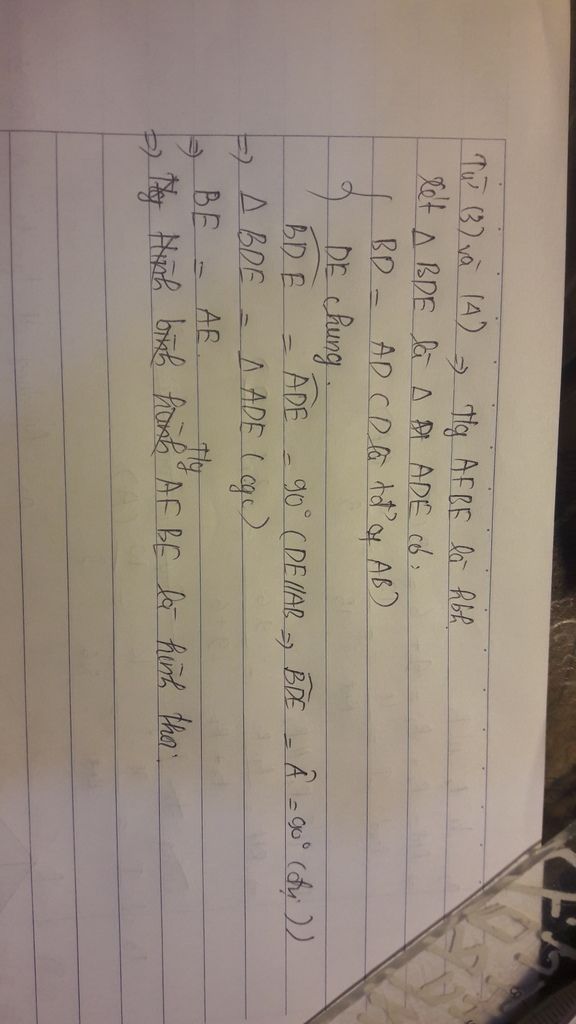 Từ (3) và (4) ⇒ Tg AFBE là hbh
Xét Δ BDE là Δ ADE có:
BD = AD (D là tđ' of AB)
DE chung.
BDE = ADE = 90° (DE//AB ⇒ BDE = Â = 90° (đvị))
⇒ Δ BDE = Δ ADE (cgc)
⇒ BE = AE
⇒ Tg AFBE là hình thoi.